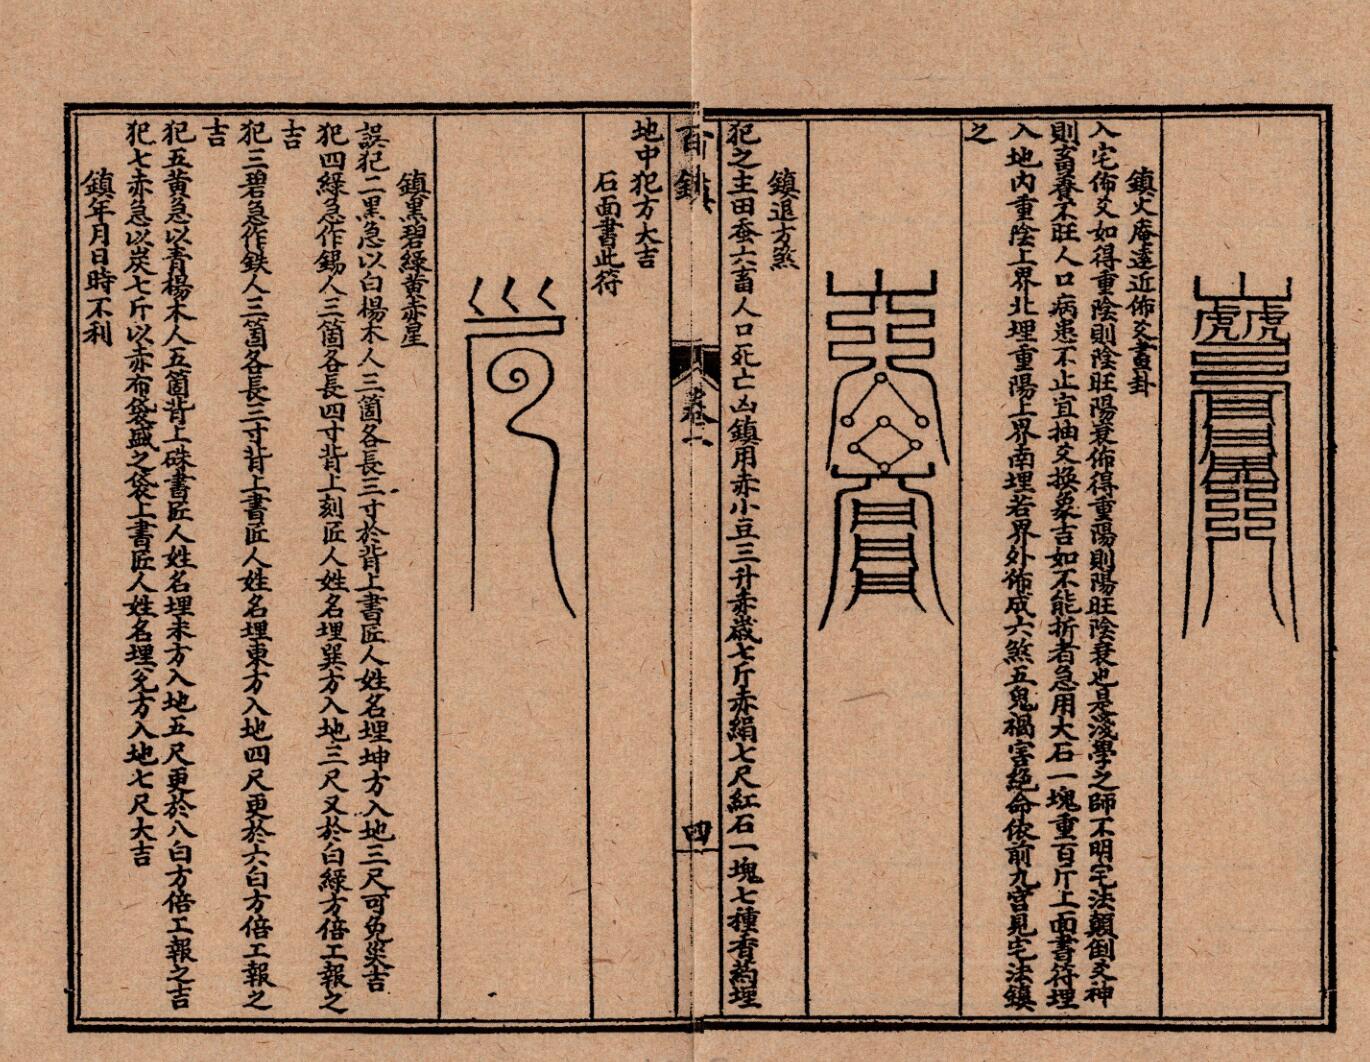 鎮火庵遠近佈爻畫卦
入宅佈爻如得重陰則陰旺陽衰佈得重陽則陽旺陰衰也是淺學之師不明宅法顛倒爻神
則畜養不旺人口病患不止宜抽爻換象吉如不能折者急用大石一塊重百斤上面書符埋
入地內重陰上界北埋重陽上界南埋若界外佈成六煞五鬼禍害絕命依前九宮見宅法鎮
之
鎮退方煞
犯之主田蚕六畜人口死亡凶鎮用赤小豆三升赤歲七斤赤絹七尺紅石一塊七種香葯埋
百鎮
卷二
四
地中犯方大吉
石面書此符
鎮黑碧綠黃赤星
誤犯二黑急以白楊木人三箇各長三寸於背上書匠人姓名埋坤方入地三尺可免災吉
犯四綠急作錫人三箇各長四寸背上刻匠人姓名埋巽方入地三尺又於白綠方倍工報之
吉
犯三碧急作鉄人三箇各長三寸背上書匠人姓名埋東方入地四尺更於六白方倍工報之
吉
犯五黃急以青楊木人五箇背上硃書匠人姓名埋未方入地五尺更於八白方倍工報之吉
犯七赤急以炭七斤以赤布袋盛之袋上書匠人姓名埋兌方入地七尺大吉
鎮年月日時不利